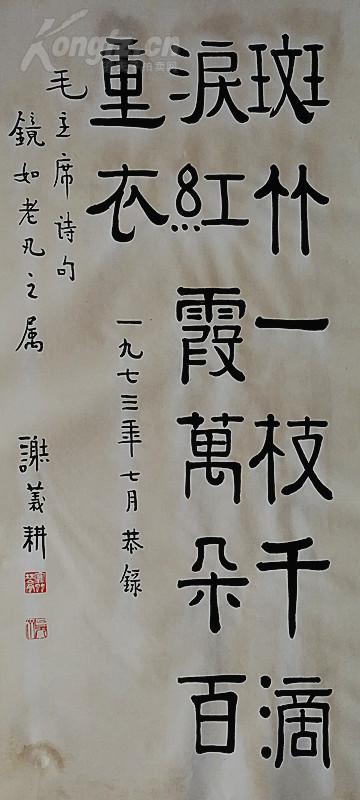 斑竹一枝千滴
淚紅霞萬朵百
重衣
一九七三年七月恭錄
毛主席诗句
鏡如老兄之属
謝義耕
拍卖网